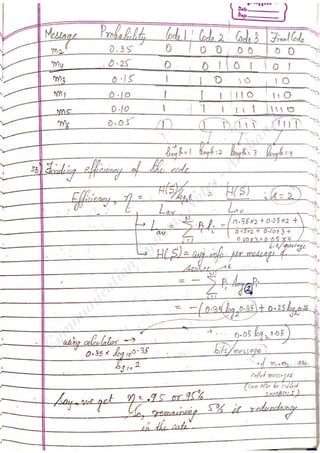 Date
Page
Message Probability Code 1 Code 2 Code 3 Final Code
m2 0.35 0 0 00 00
m4 0.25 0 0 1 01 01
m3 0.15 1 1 0 10 10
m1 0.10 1 1 1 110 110
m5 0.10 1 1 1 1 1110
m6 0.05 1 1 1 1111 1111
length=1 length=2 length=3 length=4
Finding efficiency of the code
Efficiency, η = H(S)/log2 = H(S), r=2
Lav Lav
Lav = Σ Pi li = (0.35x2 + 0.25x2 +
0.15x2 + 0.10x3 +
0.10x4 + 0.05x4)
bits/message
H(S) = avg. info per message of
source
= - Σ Pi log2 Pi
= - (0.35 log2 0.35) + 0.25 log2 0.25
+ ... 0.05 log2 0.05)
using calculator → bits/message
0.35 x log10 0.35
log10 2
if m1, m2... are
called messages
(can also be called
SYMBOLS)
Say we get η = .95 or 95%
So, remaining 5% is redundancy
in the code